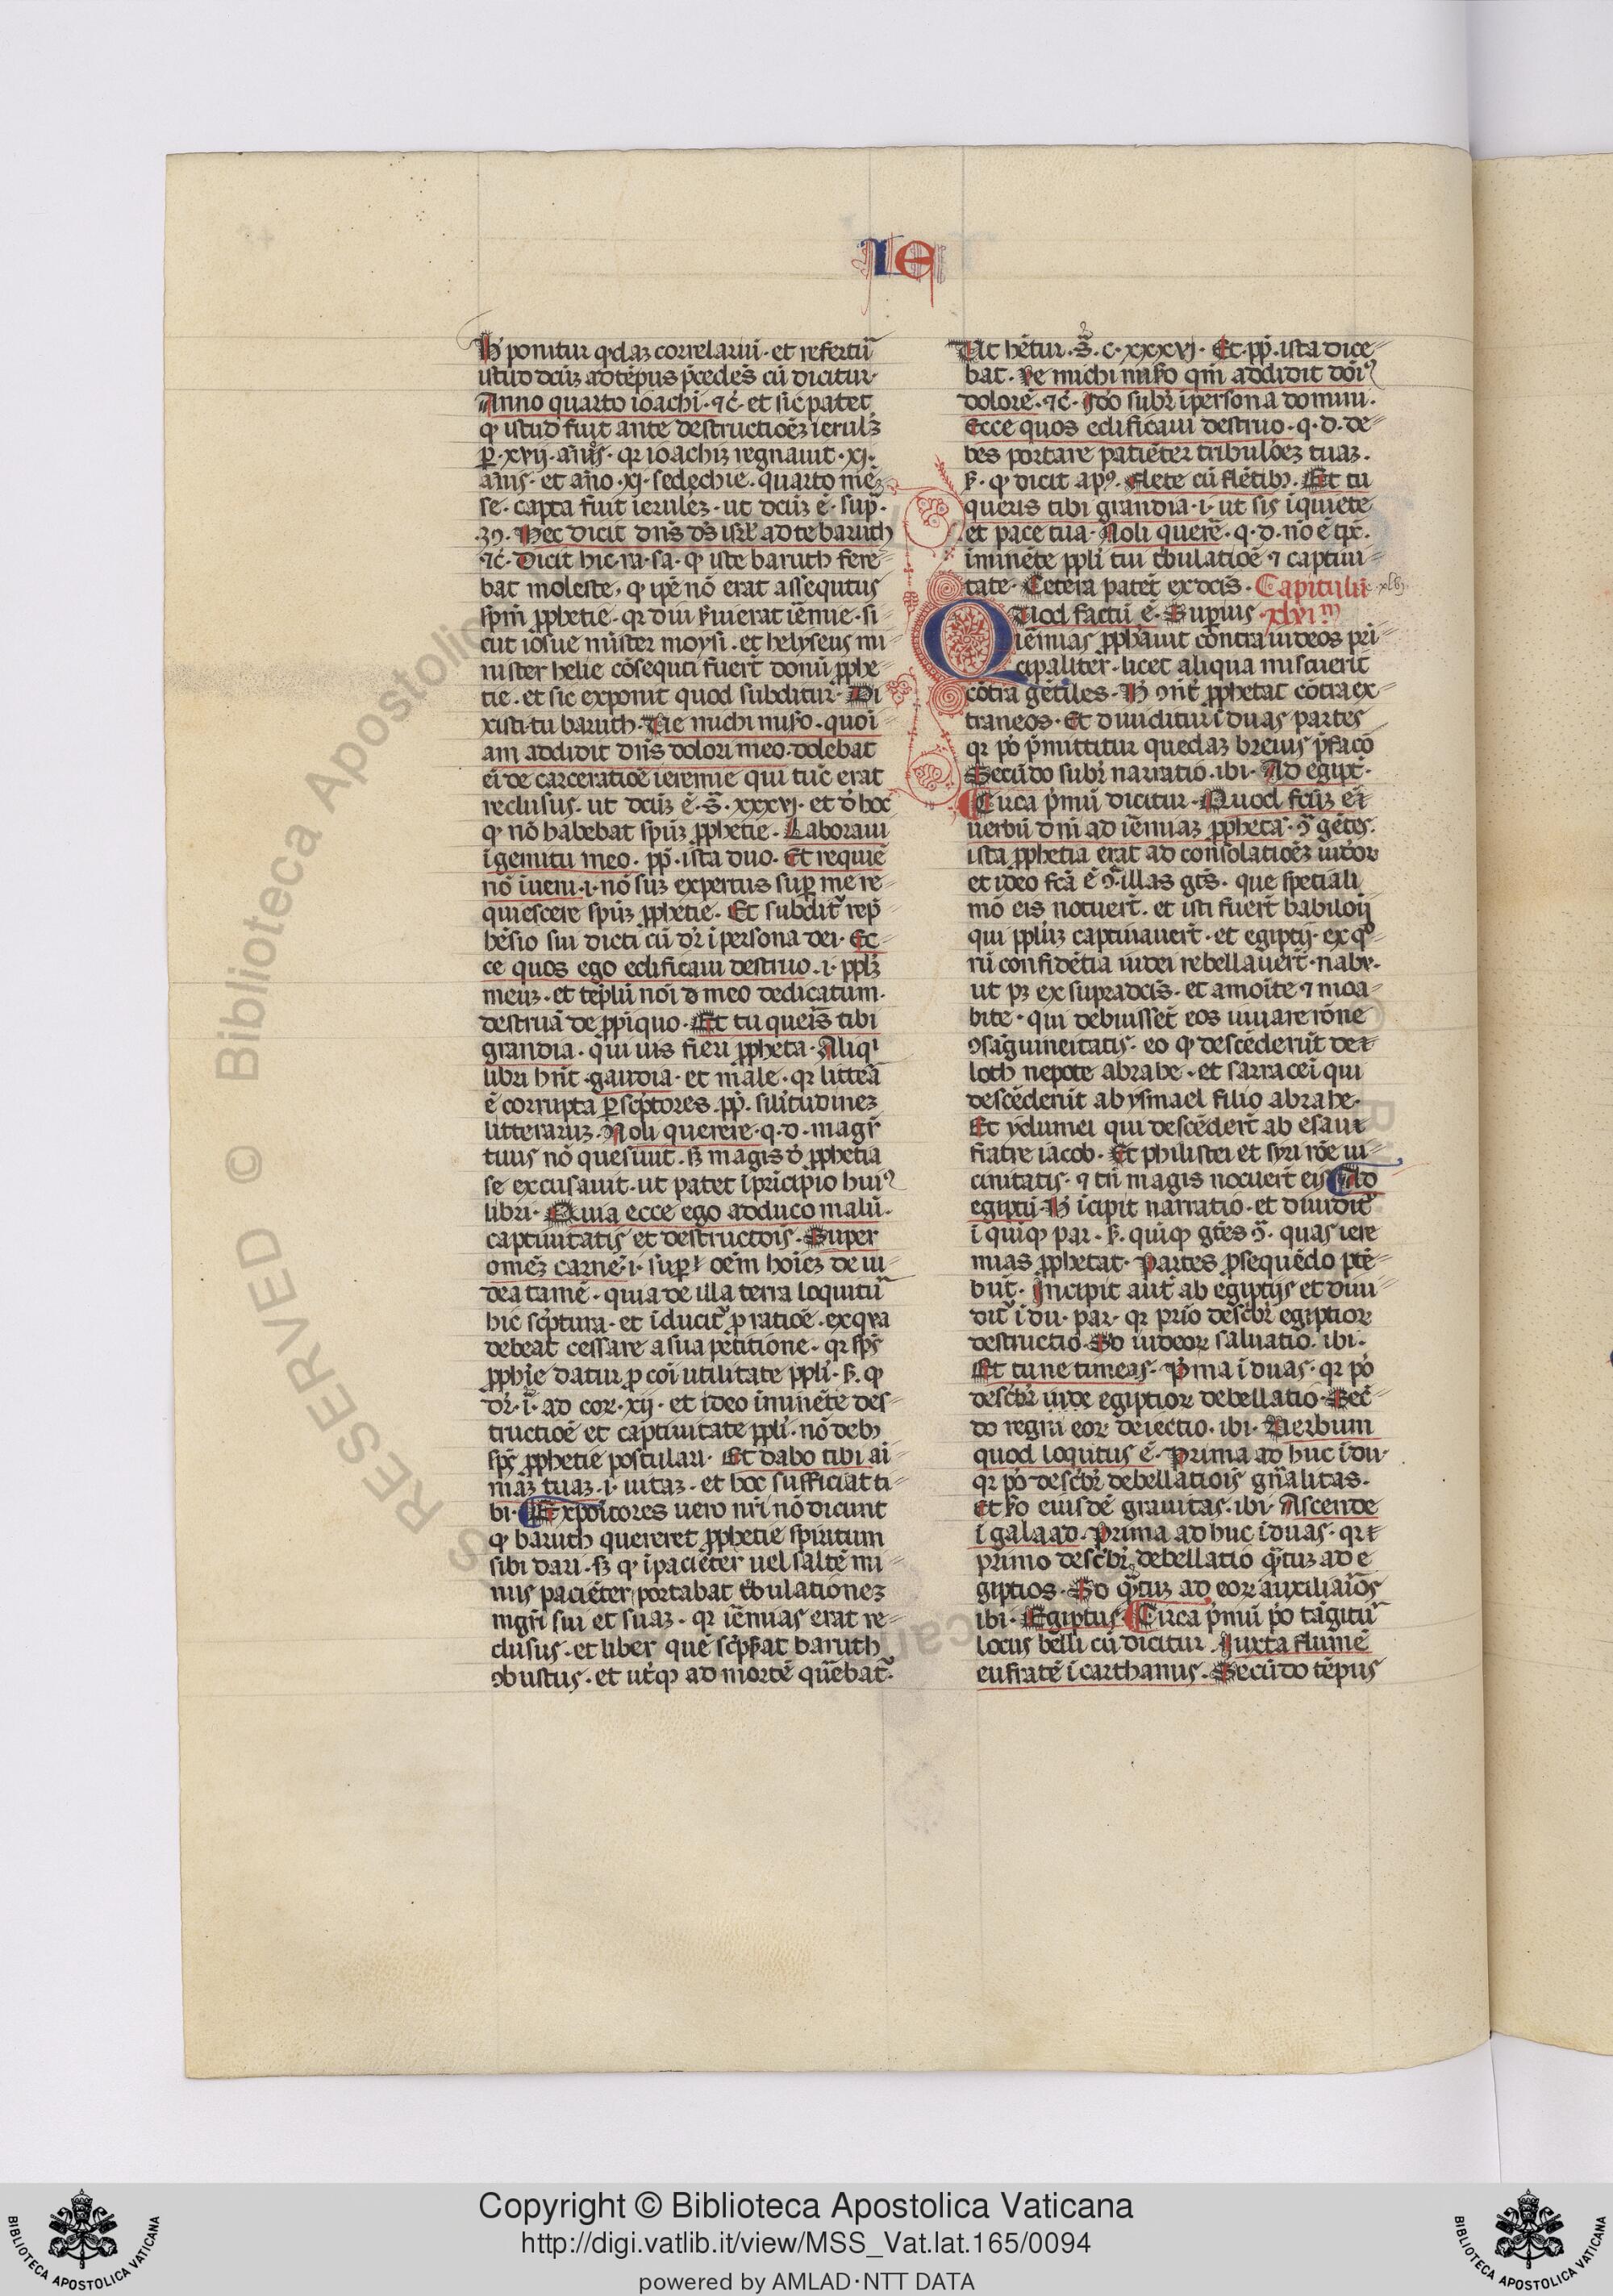 IE
H ponitur qdaz correlariu · et refertur
istud dcuz ad tepus pcedes cu dicitur ·
Anno quarto ioachi · ⁊c̄ · et sic patet
qͥ istud fuit ante destructioez ierulz
p · xvij · annis · qr ioachiz regnauit · xj ·
annis · et ano · xj · sedechie · quarto me
se · capta fuit ierulez · ut dcuz e · sup ·
39 · Hec dicit dns ds isrl ad te baruch
⁊c̄ · Dicit hic · ra · sa · qͥ iste baruch fere
bat moleste, qͥ ipe no erat assequtus
spm pphetie · qr diu suierat iemie · si
cut iosue mister moysi · et helyseus mi
nister helie cosequti fuert donu pphe
tie · et sic exponit quod subditur · Di
xisti · tu baruch · Ue michi miso · quoi
am addidit dns dolori meo · dolebat
ei de carceratioe ieremie qui tuc erat
reclusus · ut dcuz e · s · xxxvj · et d hoc
qͥ no habebat spuz pphetie · Laboraui
i gemitu meo · pp · ista duo · Et requie
no iueni · i · no suz expertus sup me re
quiescere spuz pphetie · Et subdit rep
hesio sui dicti cu dr i persona dei · Ec
ce quos ego edificaui destruo · i · pplz
meuz · et teplu noi d meo dedicatum ·
destrua de ppiquo · Et tu queis tibi
grandia · qui uis fieri ppheta · Aliqͥ
libri hnt · gaudia · et male · qr littea
e corrupta p scptores · pp · silitudinez
litteraruz · Noli querere · q · d · magr
tuus no quesiuit · sz magis d pphetia
se excusauit · ut patet i pricipio huiꝰ
libri · Quia ecce ego adduco malu ·
captiuitatis et destructois · Super
omez carne · i · sup oem hoiez de iu
dea tame · quia de illa terra loquitur
hic scptura · et iducit p ratioe · ex qua
debeat cessare a sua petitione · qr sps
pphie datur p coi utilitate ppli · s · qͥ
dr · i · ad cor · xij · et ideo iminete des
tructioe et captiuitate ppli · no deb
sps pphetie postulari · Et dabo tibi ai
maz tuaz · i · uitaz · et hoc sufficiat ti
bi · Expoitores uero nri no dicunt
qͥ baruch quereret pphetie spiritum
sibi dari · sz qͥ ipacieter uel salte mi
nus pacieter portabat tbulationez
mgri sui et suaz · qr iemias erat re
clusus · et liber que scpsat baruch
ꝯbustus · et utqꝫ ad morte quebat ·
Ut hetur · s · c · xxxvj · Et · pp · ista dice
bat · Ve michi miso qm addidit doiꝰ
dolore · ⁊c̄ · Ido subr i persona domini ·
Ecce quos edificaui destruo · q · d · de
bes portare patieter tribulocez tuaz ·
s · qͥ dicit apꝰ · Flete cu fletib · Et tu
queris tibi grandia · i · ut sis i quiete
et pace tua · Noli quere · q · d · no e tps ·
iminete ppli tui tbulatioe ⁊ captiui
tate · Cetera patet ex dcis · Capitulu xlvj
Quod factu e · Superius xlvi m
iemias pphauit contra iudeos pri
cipaliter · licet aliqua miscuerit
cotra getiles · H ꝯnt pphetat cotra ex
traneos · Et diuiditur i duas partes
qr po pmittitur quedaz breuis pfaco
Secudo subr narratio · ibi · Ad egipt ·
Circa pmu dicitur · Quod fcuz est
uerbu dni ad iemiaz ppheta · ꝯ getes ·
ista pphetia erat ad consolatioez iudeor
et ideo fca e ꝯ illas gtes · que speciali
mo eis nocuert · et isti fuert babiloij
qui ppluz captiuauert · et egiptij · ex qo
ru confidetia iudei rebellauert · nabr ·
ut pz ex supradcis · et amoite ⁊ moa
bite · qui debuisset eos iuuare rone
ꝯsaguineitatis · eo qͥ descederut de
loth nepote abrahe · et sarracei qui
descederut ab ysmael filio abrahe ·
Et ydumei qui descedert ab esau
fratre iacob · Et philistei et syri roe ui
cinitatis · ⁊ tn magis nocuert eis Ad
egiptu · H icipit narratio · et diuidit
i quiqꝫ par · s · quiqꝫ gtes ꝯ · quas iere
mias pphetat · Partes psequedo pte
but · Incipit aut ab egiptijs et diui
dit i du · par · qr prio descbr egiptior
destructio · So iudeor saluatio · ibi ·
Et tu ne timeas · Pma i duas · qr po
descbr inde egiptior debellatio · Sec
do regni eor deiectio · ibi · Uerbum
quod loqutus e · Prima ad huc i du ·
qr po descbr debellatiois gnalitas ·
Et so eiusde grauitas · ibi · Ascende
i galaad · Prima ad huc i duas · qr
primo descbr debellatio qtuz ad e
giptios · So qtuz ad eor auxiliarios
ibi · Egiptus · Circa pmu po tagitur
locus belli cu dicitur Juxta flume
eufrate i carchamis · Secudo tepus
Copyright © Biblioteca Apostolica Vaticana
http://digi.vatlib.it/view/MSS_Vat.lat.165/0094
powered by AMLAD·NTT DATA